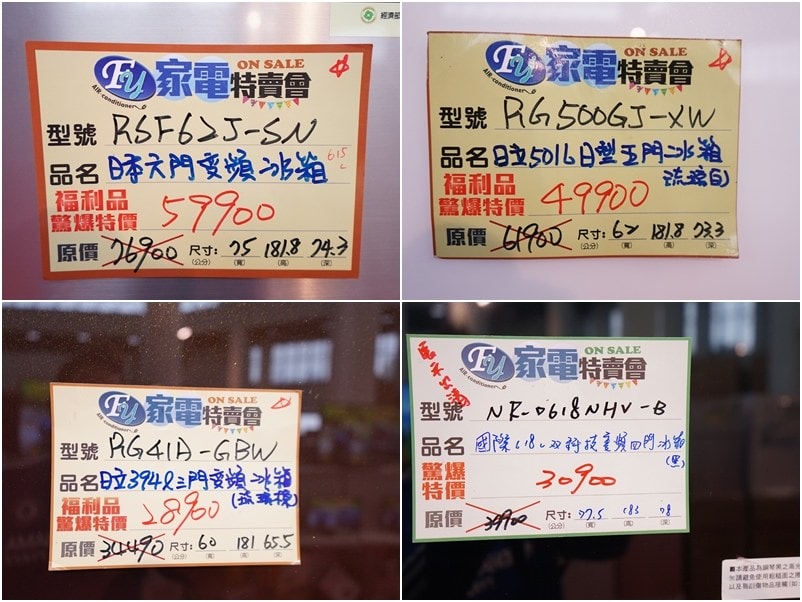 經濟部
ON SALE
FU 家電特賣會
AIR-conditioner
型號 RSF62J-SN
品名 日本六門變頻冰箱 615L
福利品
驚爆特價 59900
原價 76900 尺寸: 75 181.8 74.3
(公分) (寬) (高) (深)
ON SALE
FU 家電特賣會
AIR-conditioner
型號 RG500GJ-XW
品名 日立501L日型五門冰箱
琉璃白)
福利品
驚爆特價 49900
原價 61900 尺寸: 62 181.8 73.3
(公分) (寬) (高) (深)
ON SALE
FU 家電特賣會
AIR-conditioner
型號 RG41A-GBW
品名 日立394ℓ三門變頻冰箱
福利品 (琉璃棕)
驚爆特價 28900
原價 34490 尺寸: 60 181 65.5
(公分) (寬) (高) (深)
ON SALE
FU 家電特賣會
AIR-conditioner
型號 NR-D618NHV-B
品名 國際618L雙科技變頻四門冰箱
(黑)
驚爆
特價 30900
原價 39900 尺寸: 77.5 183 78
(公分) (寬) (高) (深)
■本產品為鋼琴黑之高光